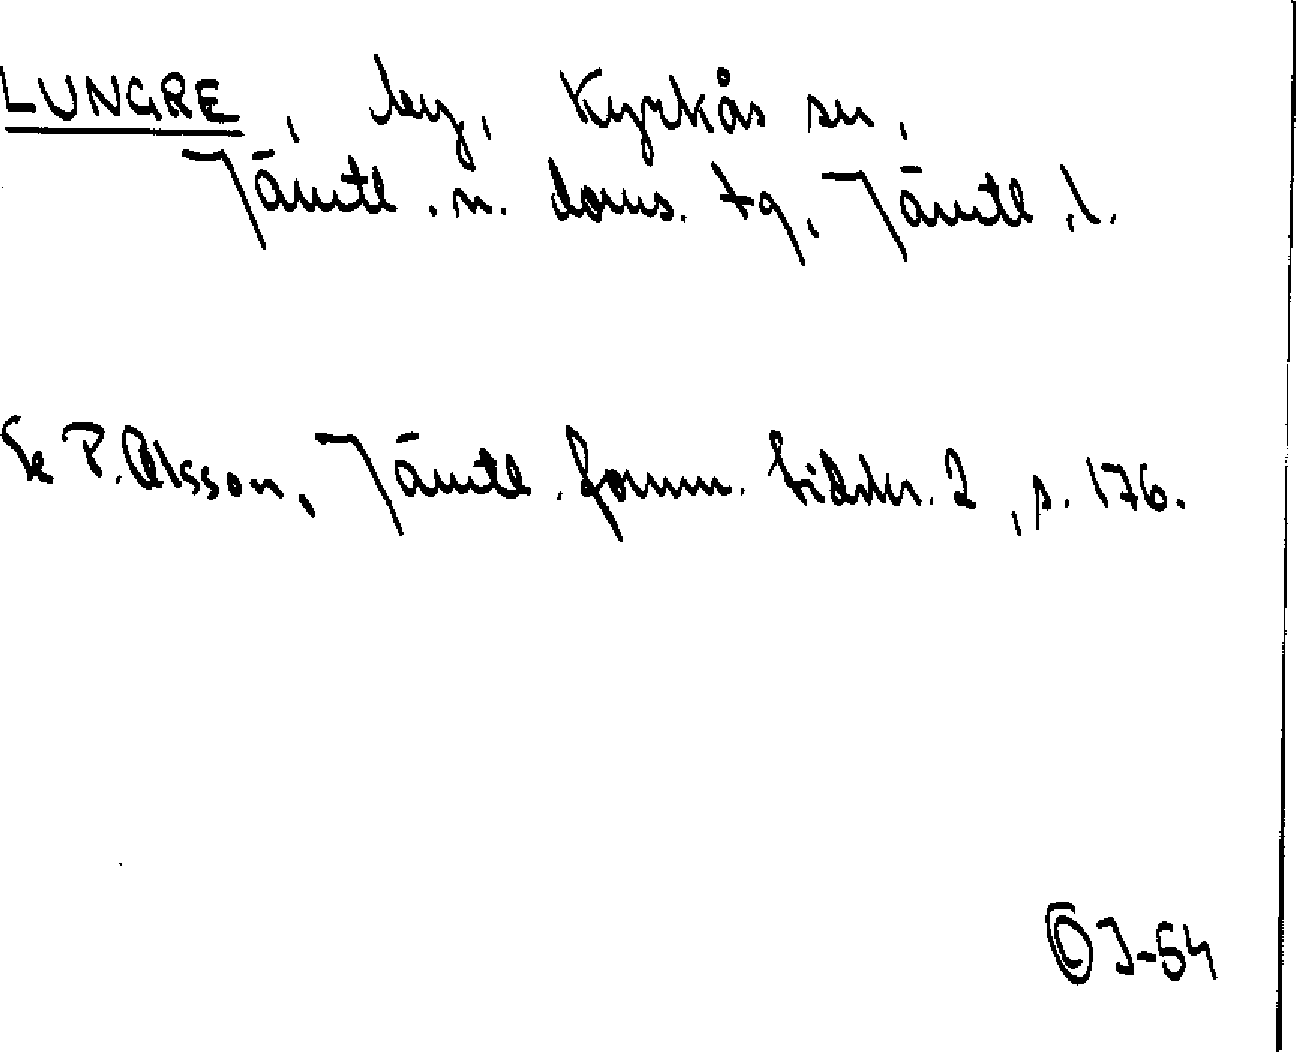 LUNGRE, by, Kyrkås sn,
Jämtl. n. doms. tg, Jämtl. l.
Se P. Olsson, Jämtl. fornm. tidskr. 2, s. 176.
© J-54